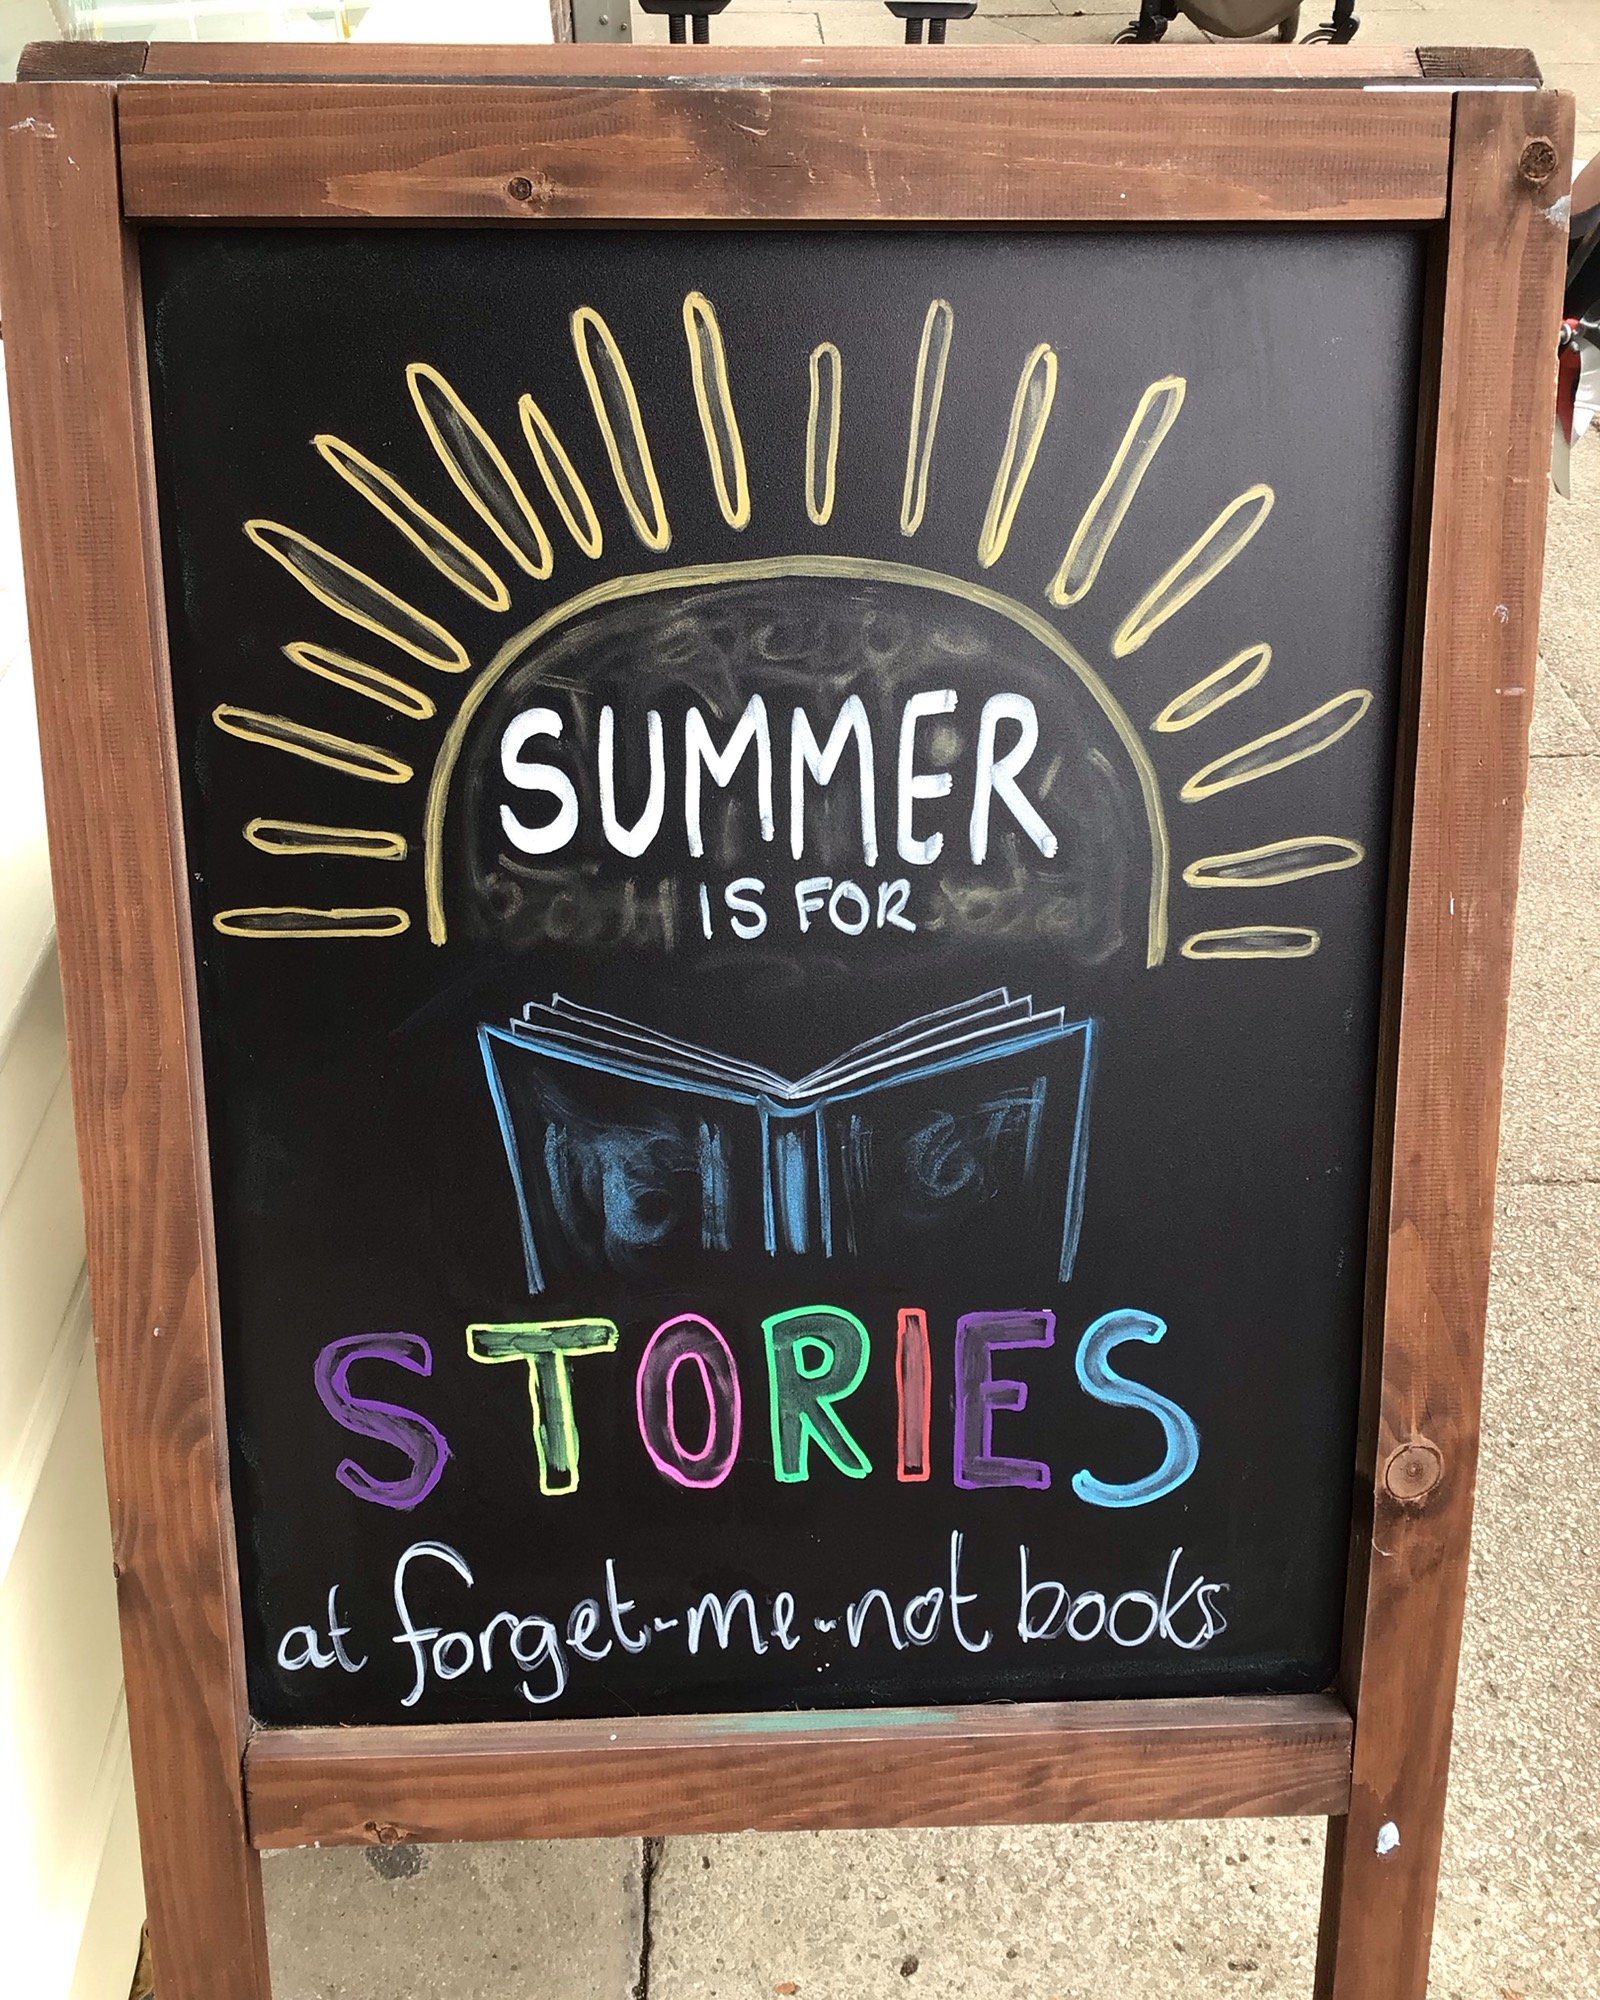 SUMMER
IS FOR
STORIES
at forget-me-not books